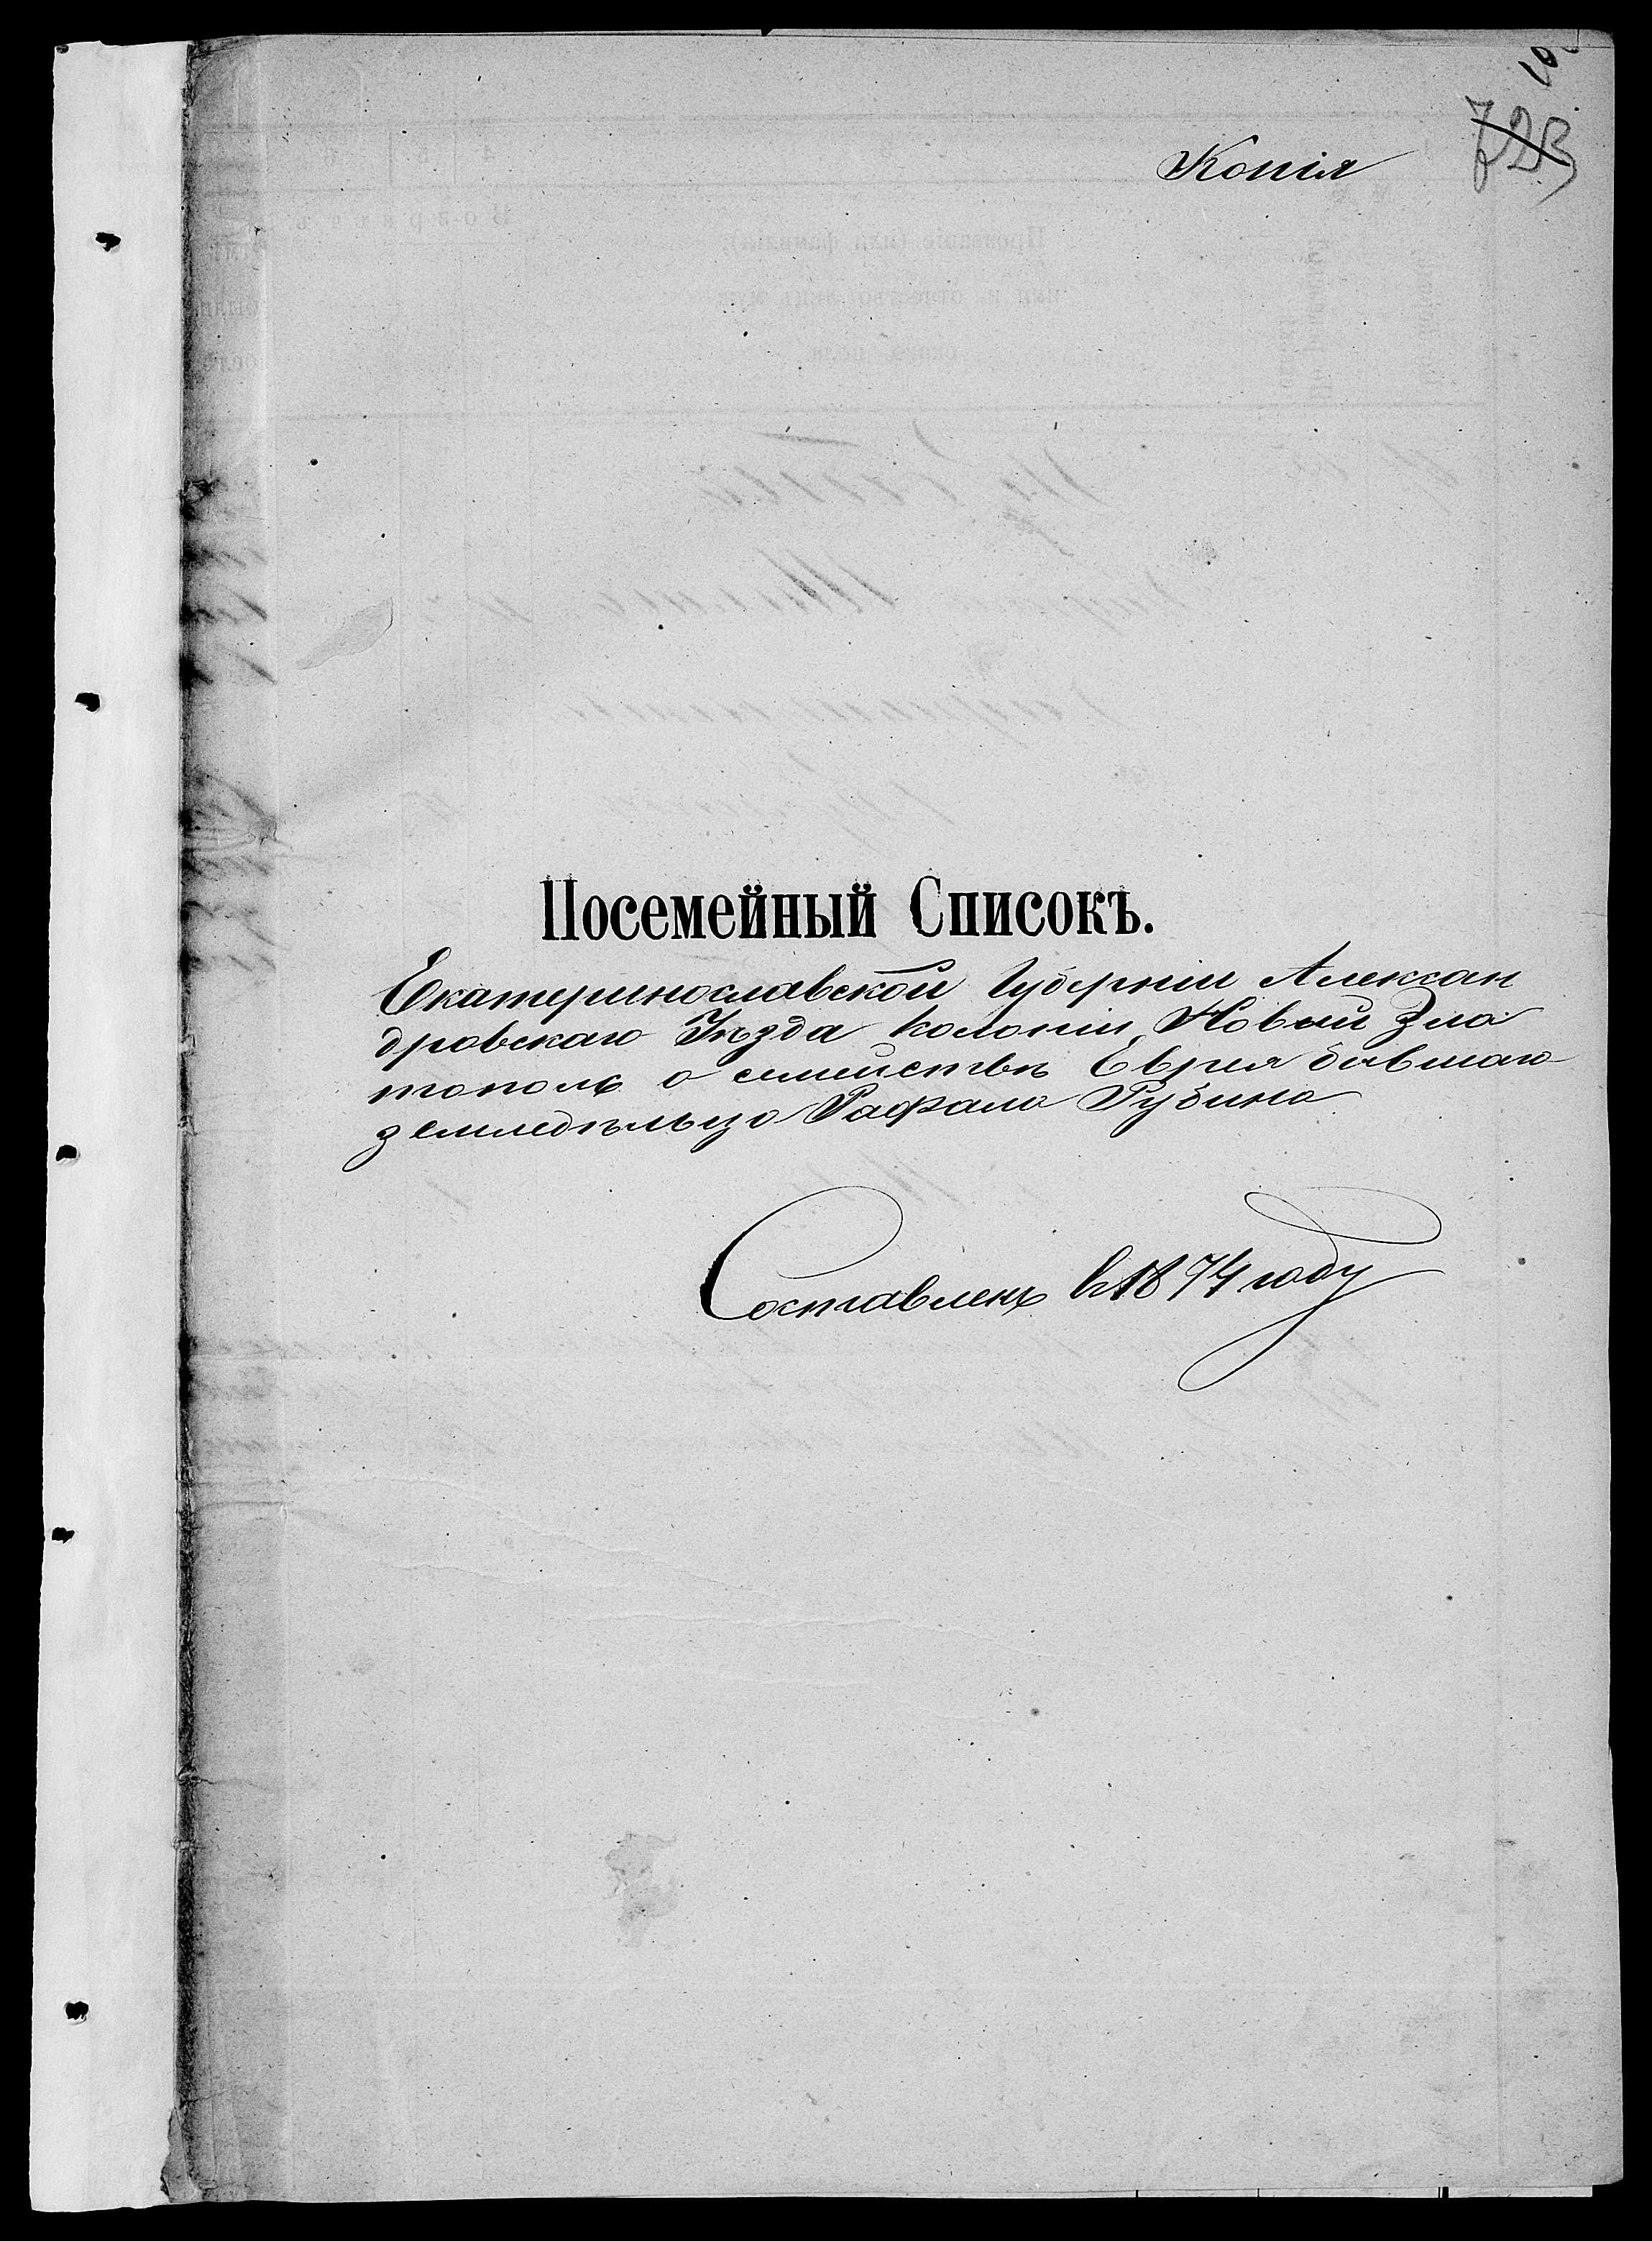 723
Копія
Посемейный Списокъ.
Екатеринославской Губерніи Алексан
дровскаго Уѣзда колоніи Новый Зла
тополь о семействѣ Еврея бывшаго
земледѣльца Рафала Рубина
Составленъ в 1874 году